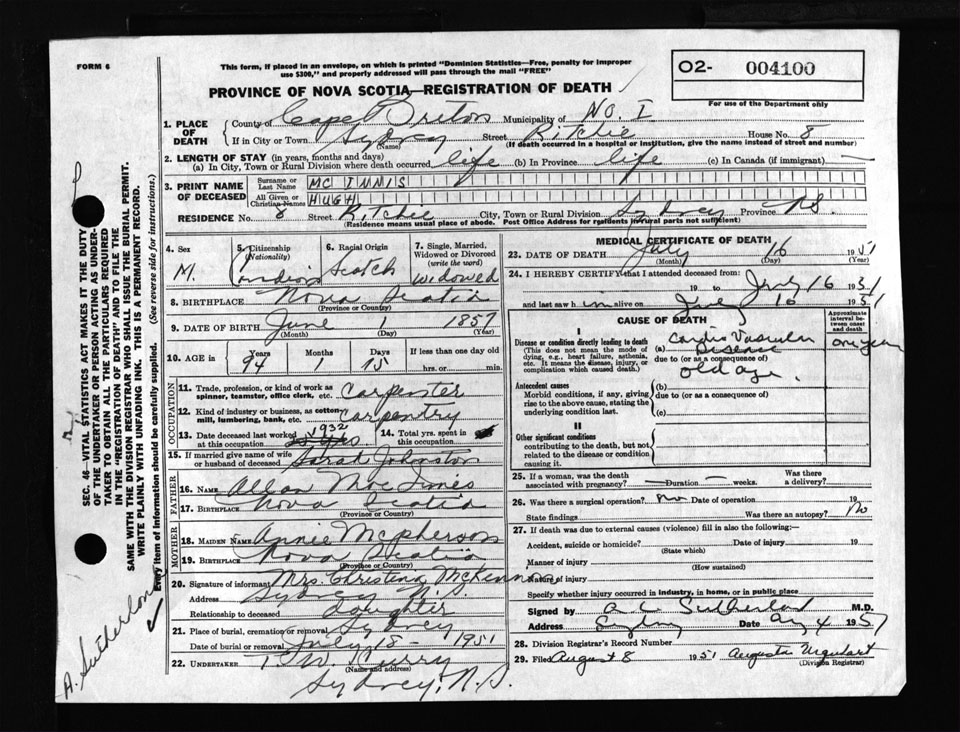 FORM 6
This form, if placed in an envelope, on which is printed "Dominion Statistics—Free, penalty for improper
use $300," and properly addressed will pass through the mail "FREE"
PROVINCE OF NOVA SCOTIA—REGISTRATION OF DEATH
O2- 004100
For use of the Department only
1. PLACE OF DEATH
County of Cape Breton Municipality of No. I
If in City or Town Sydney Street Ritchie House No. 8
(Name) (If death occurred in a hospital or institution, give the name instead of street and number)
2. LENGTH OF STAY (in years, months and days)
(a) In City, Town or Rural Division where death occurred life (b) In Province life (c) In Canada (if immigrant) —
3. PRINT NAME OF DECEASED
Surname or Last Name MC INNIS
All Given or Christian Names HUGH
RESIDENCE No. 8 Street Ritchie City, Town or Rural Division Sydney Province N.S.
(Residence means usual place of abode. Post Office Address for residents in rural parts not sufficient)
4. Sex M.
5. Citizenship (Nationality) Canadian
6. Racial Origin Scotch
7. Single, Married, Widowed or Divorced (write the word) widowed
8. BIRTHPLACE Nova Scotia
(Province or Country)
9. DATE OF BIRTH June 1 1857
(Month) (Day) (Year)
10. AGE in Years 94 Months 1 Days 15 If less than one day old
hrs. or min.
OCCUPATION
11. Trade, profession, or kind of work as spinner, teamster, office clerk, etc. Carpenter
12. Kind of industry or business, as cotton mill, lumbering, bank, etc. Carpentry
13. Date deceased last worked at this occupation 1932
14. Total yrs. spent in this occupation
15. If married give name of wife or husband of deceased Sarah Johnston
FATHER
16. NAME Allan Mac Innes
17. BIRTHPLACE Nova Scotia
(Province or Country)
MOTHER
18. MAIDEN NAME Annie McPherson
19. BIRTHPLACE Nova Scotia
(Province or Country)
20. Signature of informant Mrs. Christena
Address Sydney N.S.
Relationship to deceased daughter
21. Place of burial, cremation or removal Sydney
Date of burial or removal July 18 - 1951
22. UNDERTAKER T. W. Curry
(Name and address)
Sydney, N.S.
MEDICAL CERTIFICATE OF DEATH
23. DATE OF DEATH July 16 1951
(Month) (Day) (Year)
24. I HEREBY CERTIFY that I attended deceased from:
19 to July 16 1951
and last saw him alive on 16 1951
CAUSE OF DEATH
Approximate interval between onset and death
I
Disease or condition directly leading to death
(This does not mean the mode of dying, e.g., heart failure, asthenia, etc. It means the disease, injury, or complication which caused death.)
(a) Cardio Vascular Disease one year
due to (or as a consequence of)
old age
Antecedent causes
Morbid conditions, if any, giving rise to the above cause, stating the underlying condition last.
(b)
due to (or as a consequence of)
(c)
II
Other significant conditions
contributing to the death, but not related to the disease or condition causing it.
25. If a woman, was the death associated with pregnancy? — Duration — weeks. Was there a delivery?
26. Was there a surgical operation? no Date of operation 19
State findings Was there an autopsy? No
27. If death was due to external causes (violence) fill in also the following:—
Accident, suicide or homicide? Date of injury 19
(State which)
Manner of injury
(How sustained)
Nature of injury
Specify whether injury occurred in industry, in home, or in public place
Signed by A. C. Sutherland M.D.
Address Sydney Date Aug 4 1951
28. Division Registrar's Record Number
29. Filed August 8 1951 Augusta Urquhart
(Division Registrar)
SEC. 46—VITAL STATISTICS ACT MAKES IT THE DUTY
OF THE UNDERTAKER OR PERSON ACTING AS UNDER-
TAKER TO OBTAIN ALL THE PARTICULARS REQUIRED
IN THE "REGISTRATION OF DEATH" AND TO FILE THE
SAME WITH THE DIVISION REGISTRAR WHO SHALL ISSUE THE BURIAL PERMIT.
WRITE PLAINLY WITH UNFADING INK. THIS IS A PERMANENT RECORD.
Every item of information should be carefully supplied. (See reverse side for instructions.)
A. Sutherland